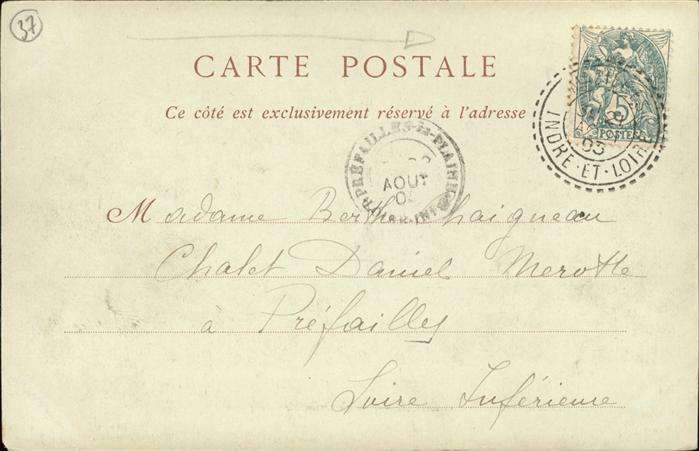 37
CARTE POSTALE
Ce côté est exclusivement réservé à l'adresse
5
POSTES
INDRE-ET-LOIRE
03
PRÉFAILLES-la-PLAINE
AOUT
Madame Berthe Chaigneau
Chalet Daniel Merotte
à Préfailles
Loire Inférieure